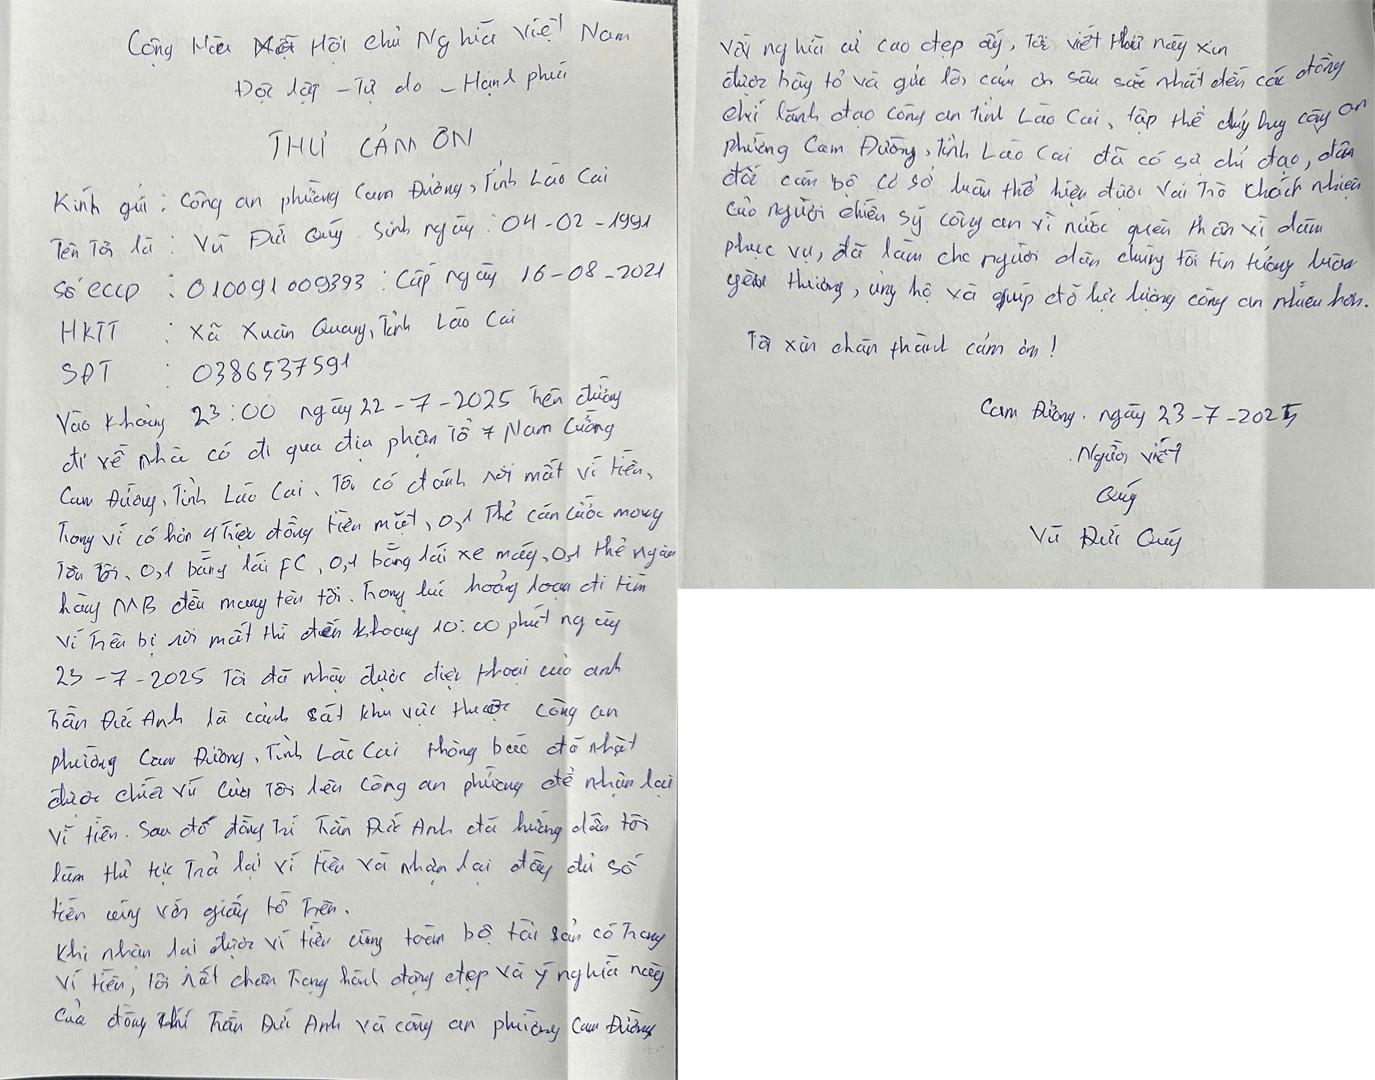 Cộng Hòa Xã Hội chủ Nghĩa Việt Nam
Độc lập - Tự do - Hạnh phúc
THƯ CẢM ƠN
Kính gửi : Công an phường Cam Đường, Tỉnh Lào Cai
Tên Tôi là : Vũ Đức Quý. Sinh ngày : 04-02-1991
Số CCCD : 010091009393 : Cấp ngày 16-08-2021
HKTT : Xã Xuân Quang, Tỉnh Lào Cai
SĐT : 0386537591
Vào khoảng 23:00 ngày 22-7-2025 Trên đường
đi về nhà có đi qua địa phận Tổ 7 Nam Cường
Cam Đường, Tỉnh Lào Cai, Tôi có đánh rơi mất ví tiền,
Trong ví có hơn 4 Triệu đồng tiền mặt, 0,1 Thẻ căn cước mang
Tên Tôi, 0,1 bằng lái FC, 0,1 bằng lái xe máy, 0,1 thẻ ngân
hàng MB đều mang tên tôi. Trong lúc hoảng loạn đi tìm
ví Trên bị rơi mất thì đến khoảng 10:00 phút ngày
23-7-2025 Tôi đã nhận được điện thoại của anh
Trần Đức Anh là cảnh sát khu vực thuộc công an
phường Cam Đường, Tỉnh Lào Cai thông báo đã nhặt
được chiếc ví Của Tôi lên Công an phường để nhận lại
ví tiền. Sau đó đồng trí Trần Đức Anh đã hướng dẫn tôi
làm thủ tục Trả lại ví tiền và nhận lại đầy đủ số
tiền cùng với giấy tờ Trên.
Khi nhận lại được ví tiền cùng toàn bộ tài sản có Trong
ví tiền, Tôi rất chân Trọng hành động đẹp và ý nghĩa này
của đồng chí Trần Đức Anh và công an phường Cam Đường
Với nghĩa cử cao đẹp ấy, Tôi viết thư này xin
được bày tỏ và gửi lời cảm ơn sâu sắc nhất đến các đồng
chí lãnh đạo công an tỉnh Lào Cai, tập thể chỉ huy công an
phường Cam Đường, Tỉnh Lào Cai đã có sự chỉ đạo, dẫn
dắt cán bộ cơ sở luôn thể hiện được Vai Trò trách nhiệm
của người chiến sỹ công an vì nước quên thân vì dân
phục vụ, đã làm cho người dân chúng tôi tin tưởng luôn
yêu thương, ủng hộ và giúp đỡ lực lượng công an nhiều hơn.
Tôi xin chân thành cảm ơn !
Cam Đường. ngày 23-7-2025
Người viết
Quý
Vũ Đức Quý